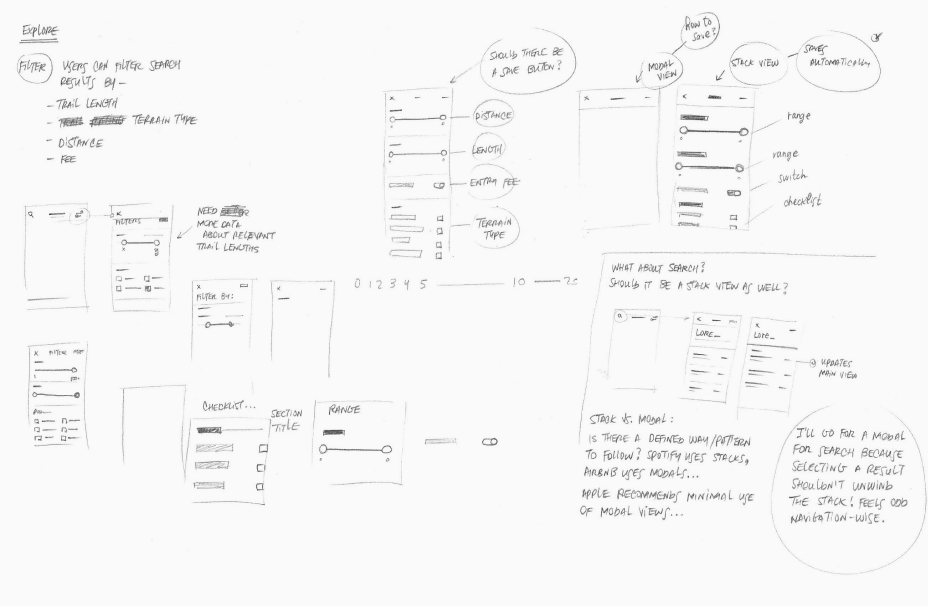 EXPLORE
FILTER
USERS CAN FILTER SEARCH
RESULTS BY -
- TRAIL LENGTH
- TERRAIN TYPE
- DISTANCE
- FEE
FILTERS
NEED
MORE DATA
ABOUT RELEVANT
TRAIL LENGTHS
SHOULD THERE BE
A SAVE BUTTON?
DISTANCE
LENGTH
ENTRY FEE
TERRAIN
TYPE
HOW TO
SAVE?
MODAL
VIEW
STACK VIEW
SAVES
AUTOMATICALLY
range
range
switch
checklist
FILTER BY:
0 1 2 3 4 5 10 20
X FILTERS
CHECKLIST...
SECTION
TITLE
RANGE
WHAT ABOUT SEARCH?
SHOULD IT BE A STACK VIEW AS WELL?
LORE_
LORE_
UPDATES
MAIN VIEW
STACK VS. MODAL:
IS THERE A DEFINED WAY/PATTERN
TO FOLLOW? SPOTIFY USES STACKS,
AIRBNB USES MODALS...
APPLE RECOMMENDS MINIMAL USE
OF MODAL VIEWS...
I'LL GO FOR A MODAL
FOR SEARCH BECAUSE
SELECTING A RESULT
SHOULDN'T UNWIND
THE STACK! FEELS ODD
NAVIGATION-WISE.